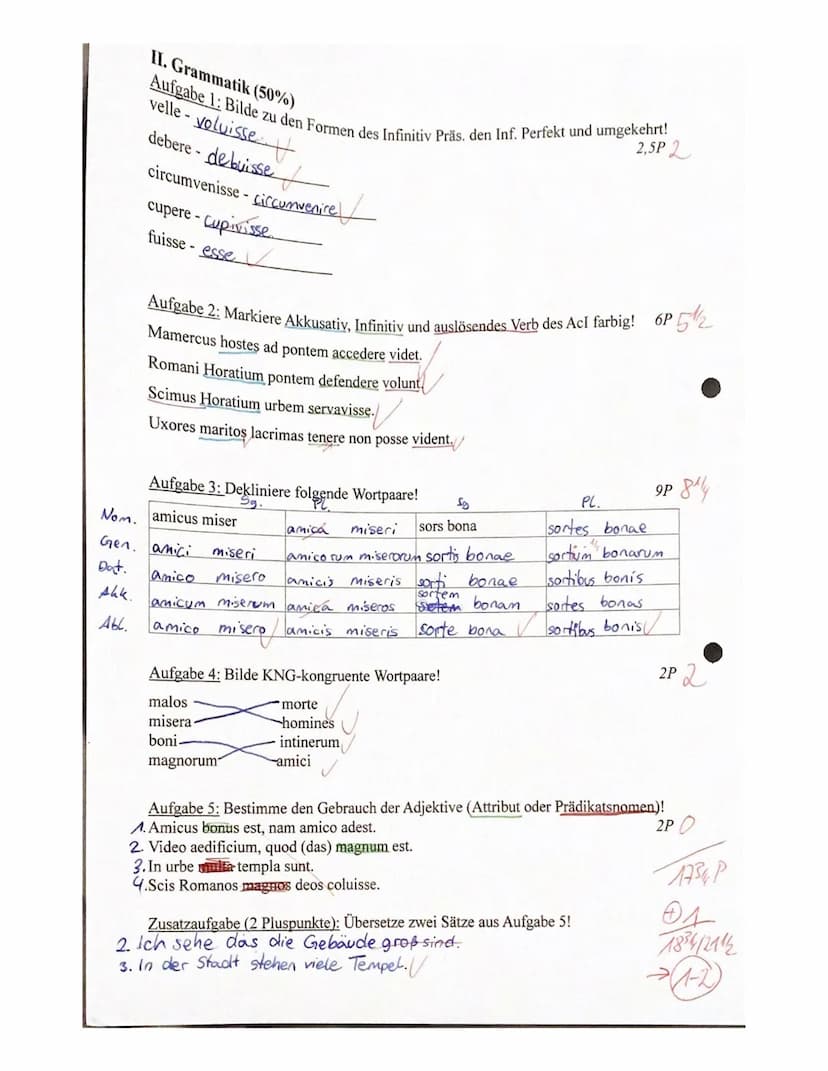 II. Grammatik (50%)
Aufgabe 1: Bilde zu den Formen des Infinitiv Präs. den Inf. Perfekt und umgekehrt!
2,5P 2
velle - voluisse
debere - debuisse
circumvenisse - circumvenire
cupere - cupivisse
fuisse - esse
Aufgabe 2: Markiere Akkusativ, Infinitiv und auslösendes Verb des AcI farbig! 6P 5 1/2
Mamercus hostes ad pontem accedere videt.
Romani Horatium pontem defendere volunt.
Scimus Horatium urbem servavisse.
Uxores maritos lacrimas tenere non posse vident.
Aufgabe 3: Dekliniere folgende Wortpaare! 9P 8 1/4
Sg. Pl. Sg Pl.
Nom. amicus miser amica miseri sors bona sortes bonae
Gen. amici miseri amicorum miserorum sortis bonae sortium bonarum
Dat. amico misero amicis miseris sorti bonae sortibus bonis
Akk. amicum miserum amica miseros sortem bonam sortes bonas
Abl. amico misero amicis miseris sorte bona sortibus bonis
Aufgabe 4: Bilde KNG-kongruente Wortpaare! 2P 2
malos morte
misera homines
boni intinerum
magnorum amici
Aufgabe 5: Bestimme den Gebrauch der Adjektive (Attribut oder Prädikatsnomen)!
2P 0
1. Amicus bonus est, nam amico adest.
2. Video aedificium, quod (das) magnum est.
3. In urbe multa templa sunt.
4. Scis Romanos magnos deos coluisse.
17 3/4 P
Zusatzaufgabe (2 Pluspunkte): Übersetze zwei Sätze aus Aufgabe 5!
+1
2. Ich sehe das die Gebäude groß sind.
18 3/4/21 1/2
3. In der Stadt stehen viele Tempel.
→ 1-2